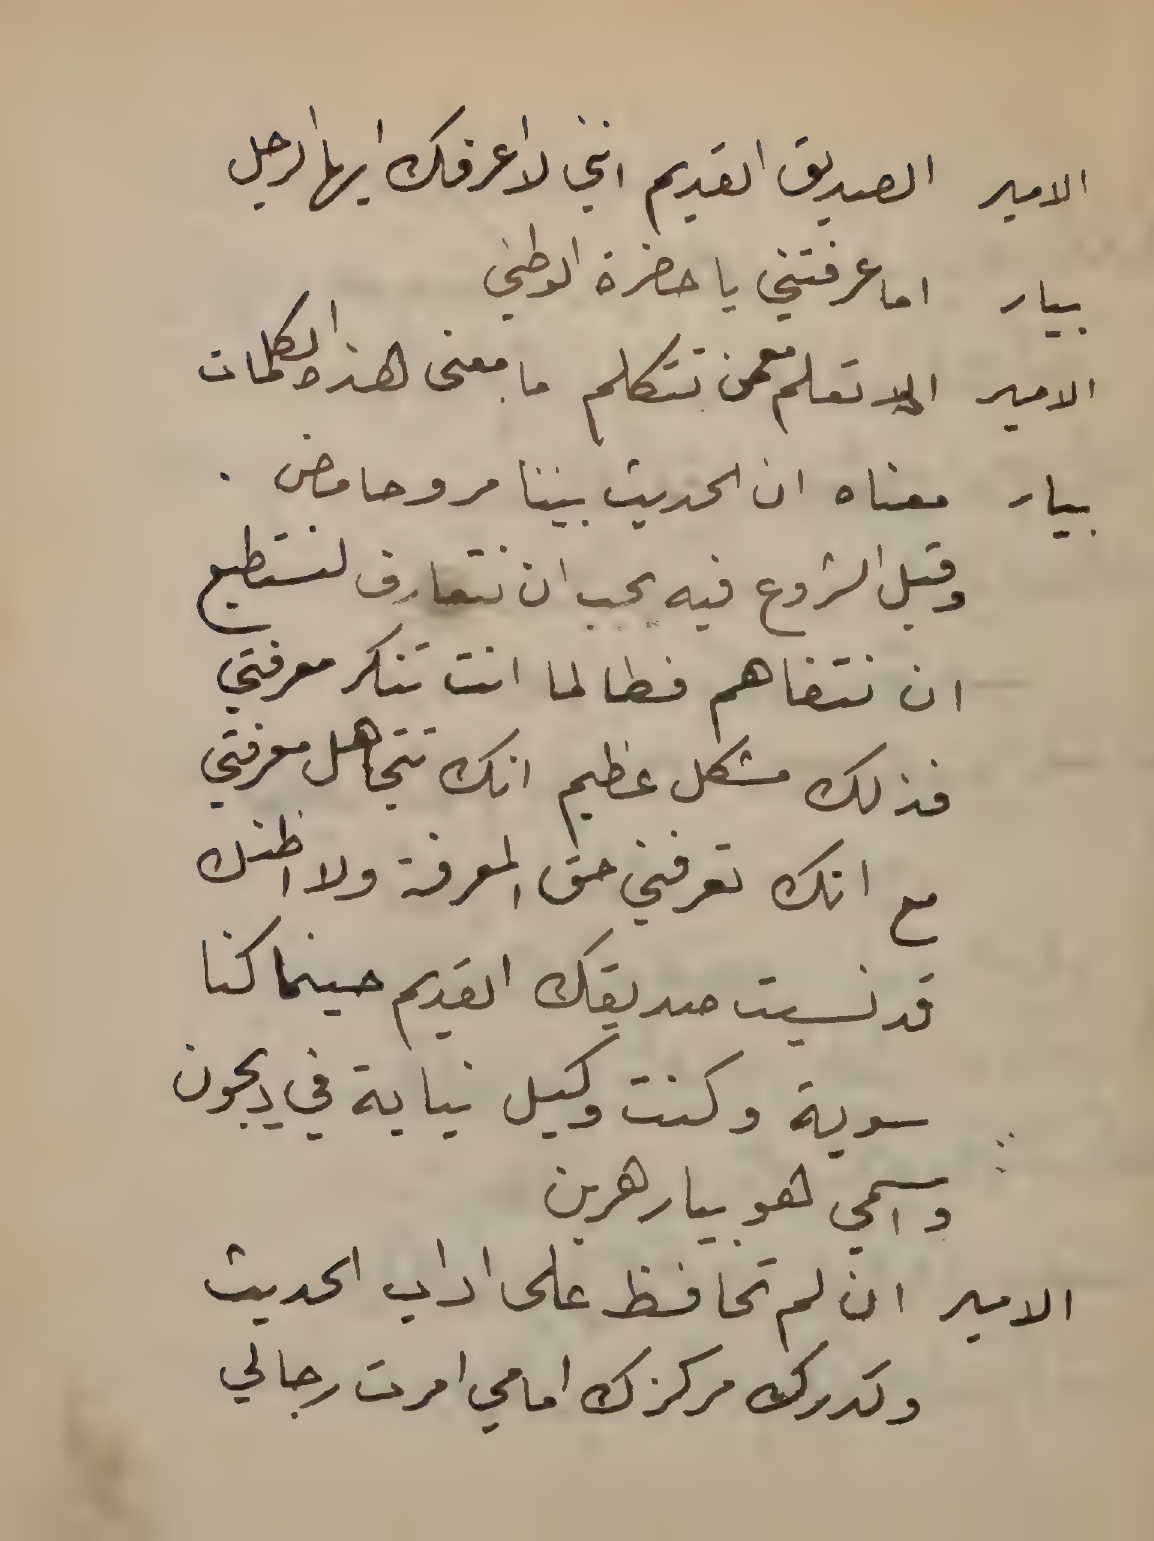 الامير الصديق القديم انني لا اعرفك ايها الرجل
بيار اما عرفتني يا حضرة الوطني
الامير الا تعلم معمن تتكلم ما معنى هذه الكلمات
بيار معناه ان الحديث بيننا مر وحامض .
وقبل الشروع فيه يجب ان نتعارف لنستطيع
ان نتفاهم فطالما انت تنكر معرفتي
فذلك مشكل عظيم انك تتجاهل معرفتي
مع انك تعرفني حق المعرفة ولا اظنك
قد نسيت صديقك القديم حينما كنا
سوية وكنت وكيل نيابة في ديجون
واسمي هو بيار هرين
الامير ان لم تحافظ على اداب الحديث
وتدرك مركزك امامي امرت رجالي